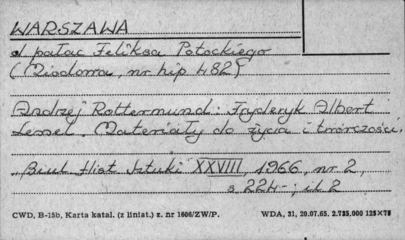 WARSZAWA
pałac Feliksa Potockiego
(Miodowa, nr hip 482)
Andrzej Rottermund: Fryderyk Albert
Lessel. Materiały do życia i twórczości.
"Biul Hist Sztuki XXVIII, 1966, nr 2,
s. 224-; il 2
CWD, B-15b, Karta katal. (z liniat.) z. nr 1606/ZW/P. WDA, 31, 20.07.65. 2.725,000 125×75